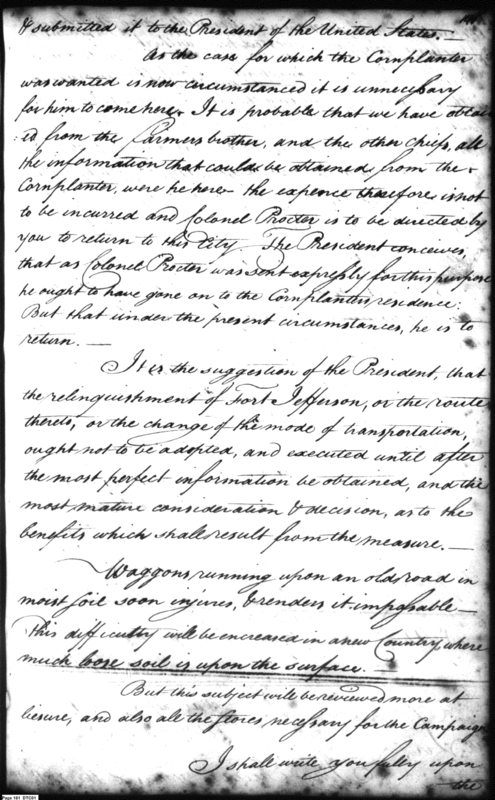 & submitted it to the President of the United States. —
As the case for which the Cornplanter
was wanted is now circumstanced it is unnecessary
for him to come here. It is probable that we have obtain
ed from the Farmers brother, and the other Chiefs, all
the information that could be obtained from the
Cornplanter, were he here — the expence therefore is not
to be incurred and Colonel Procter is to be directed by
you to return to this City. The President conceives
that as Colonel Procter was sent expressly for this purpose
he ought to have gone on to the Cornplanters residence:
But that under the present circumstances, he is to
return. —
It is the suggestion of the President, that
the relinquishment of Fort Jefferson, or the route
thereto, or the change of the mode of transportation,
ought not to be adopted, and executed until after
the most perfect information be obtained, and the
most mature consideration & decision, as to the
benefits which shall result from the measure. —
Waggons running upon an old road in
moist soil soon injures, & renders it impassable —
This difficulty will be encreased in a new Country where
much loose soil is upon the surface.
But this subject will be reviewed more at
liesure, and also all the stores necessary for the Campaign
I shall write you fully upon
the
Page 181 DTC01